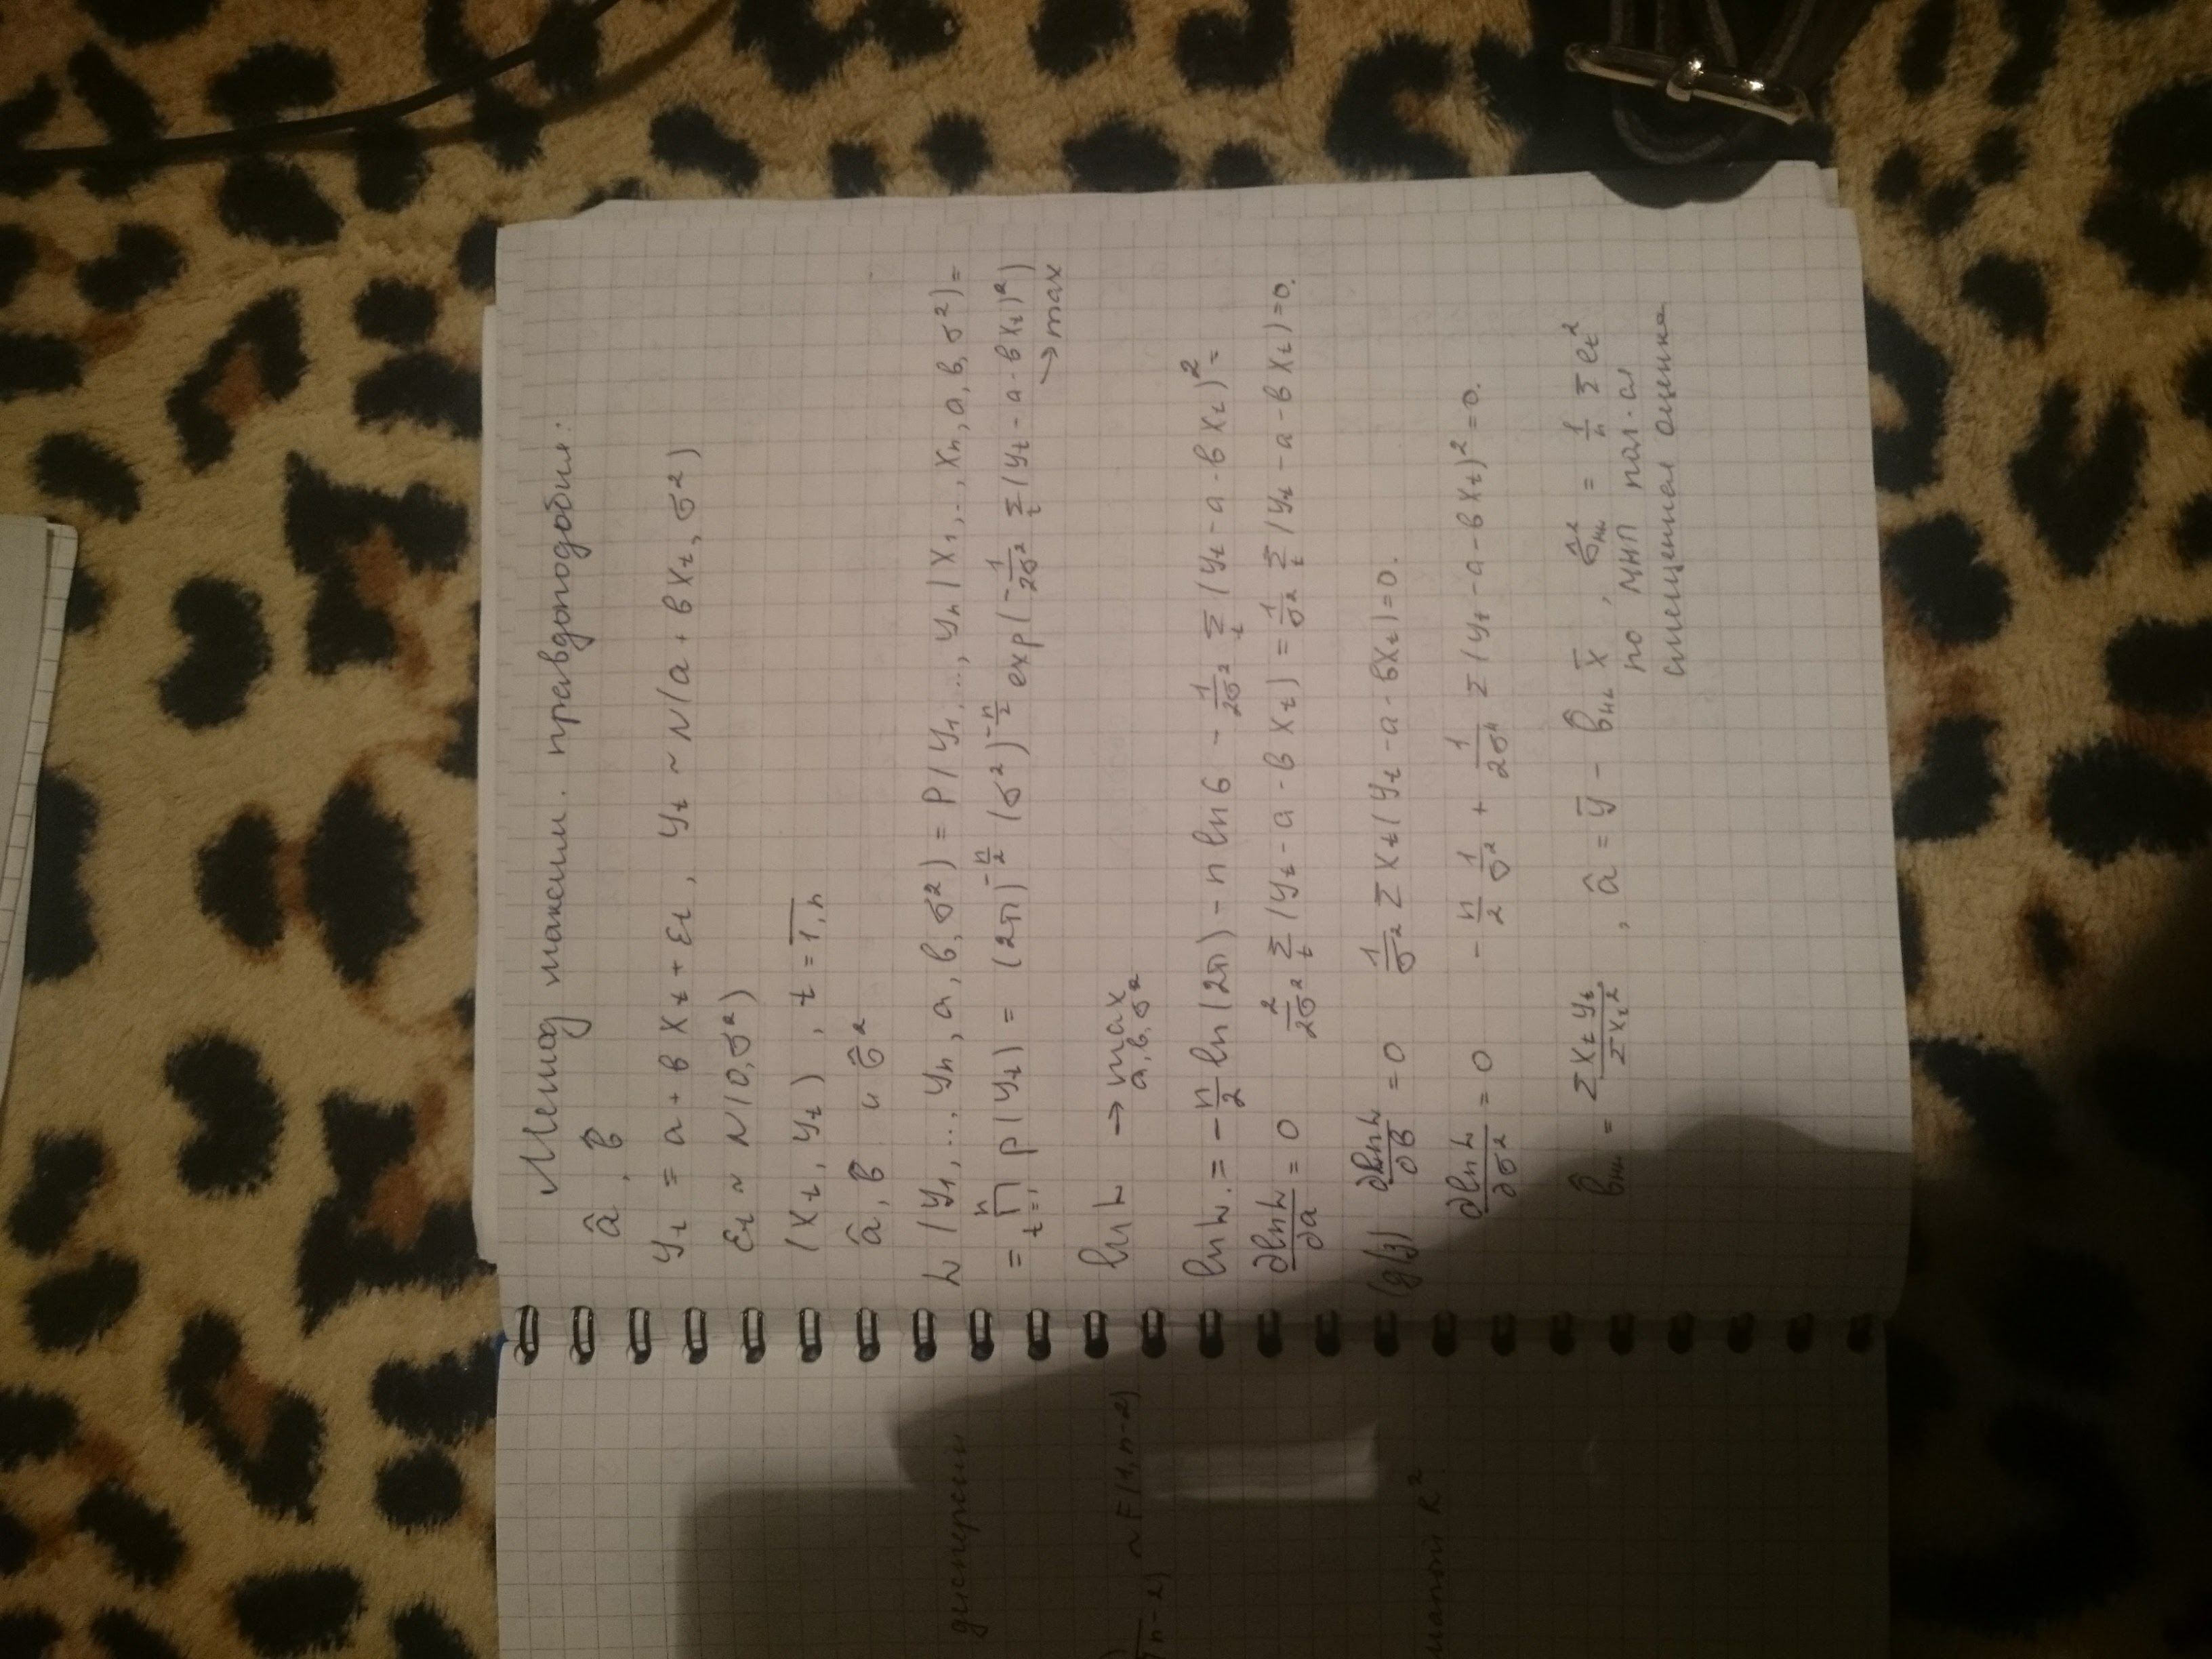 Метод максим. правдоподобия:
â, b̂
yₜ = a + bXₜ + εₜ, yₜ ~ N(a + bXₜ, σ²)
εₜ ~ N(0, σ²)
(Xₜ, yₜ), t = 1,n
â, b̂ и σ̂²
L(y₁, ..., yₙ, a, b, σ²) = P(y₁, ..., yₙ | X₁, ..., Xₙ, a, b, σ²) =
= ∏ₜ₌₁ⁿ p(yₜ) = (2π)^(-n/2) (σ²)^(-n/2) exp(-1/2σ² Σₜ(yₜ - a - bXₜ)²)
→ max
ln L → max a, b, σ²
ln L = -n/2 ln(2π) - n ln б - 1/2σ² Σₜ(yₜ - a - bXₜ)² =
∂lnL/∂a = 0 2/2σ² Σₜ(yₜ - a - bXₜ) = 1/σ² Σₜ(yₜ - a - bXₜ) = 0.
∂lnL/∂b = 0 1/σ² Σ Xₜ(yₜ - a - bXₜ) = 0.
∂lnL/∂σ² = 0 - n/2 1/σ² + 1/2σ⁴ Σ(yₜ - a - bXₜ)² = 0.
b̂ₘₙ = Σxₜyₜ/Σxₜ², â = ȳ - b̂ₘₙ x̄, σ̂²ₘₙ = 1/n Σeₜ²
по МНП пол. ся
смещенная оценка
дисперсии
n-2) ~ F(1, n-2)
R²